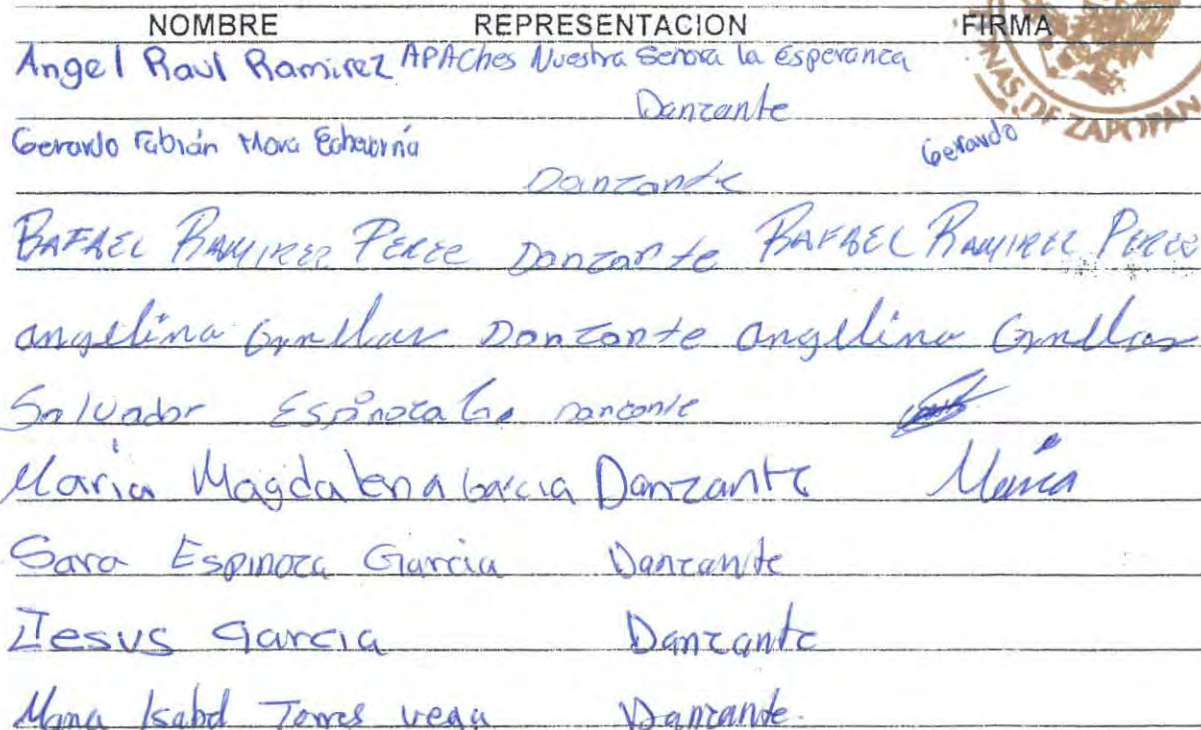 NOMBRE REPRESENTACION FIRMA
Angel Raul Ramirez APAches Nuestra Señora la Esperanza
Danzante
NAS DE ZAPOPAN
Gerardo Fabián Mora Echeverría Gerardo
Danzante
RAFAEL RAMIREZ PEREZ Danzante RAFAEL RAMIREZ PEREZ
angelina Danzante angelina
Salvador Espinoza Ga Danzante
Maria Magdalena Garcia Danzante Maria
Sara Espinoza Garcia Danzante
Jesus Garcia Danzante
Maria Isabel Torres vega Danzante.